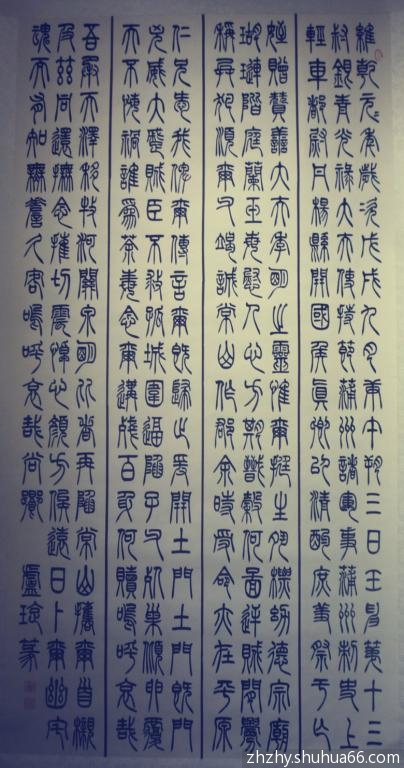 維乾元々年歲次戊戌九月庚午朔三日壬申第十三
叔銀青光祿大夫使持節蒲州諸軍事蒲州刺史上
輕車都尉丹楊縣開國侯真卿以清酌庶羞祭于亡
姪贈贊善大夫季明之靈惟爾挺生夙標幼德宗廟
瑚璉階庭蘭玉每慰人心方期戩穀何圖逆賊間釁
稱兵犯順爾父竭誠常山作郡余時受命亦在平原
仁兄愛我俾爾傳言爾既歸止爰開土門土門既門
凶威大蹙賊臣不救孤城圍逼陷子父死巢傾卵覆
天不悔禍誰為荼毒念爾遘殘百身何贖嗚呼哀哉
吾承天澤移牧河關泉明比者再陷常山攜爾首櫬
及茲同還撫念摧切震悼心顏方俟遠日卜爾幽宅
魂而有知無嗟久客嗚呼哀哉尚饗 盧玲篆
zhzhy.shuhua66.com